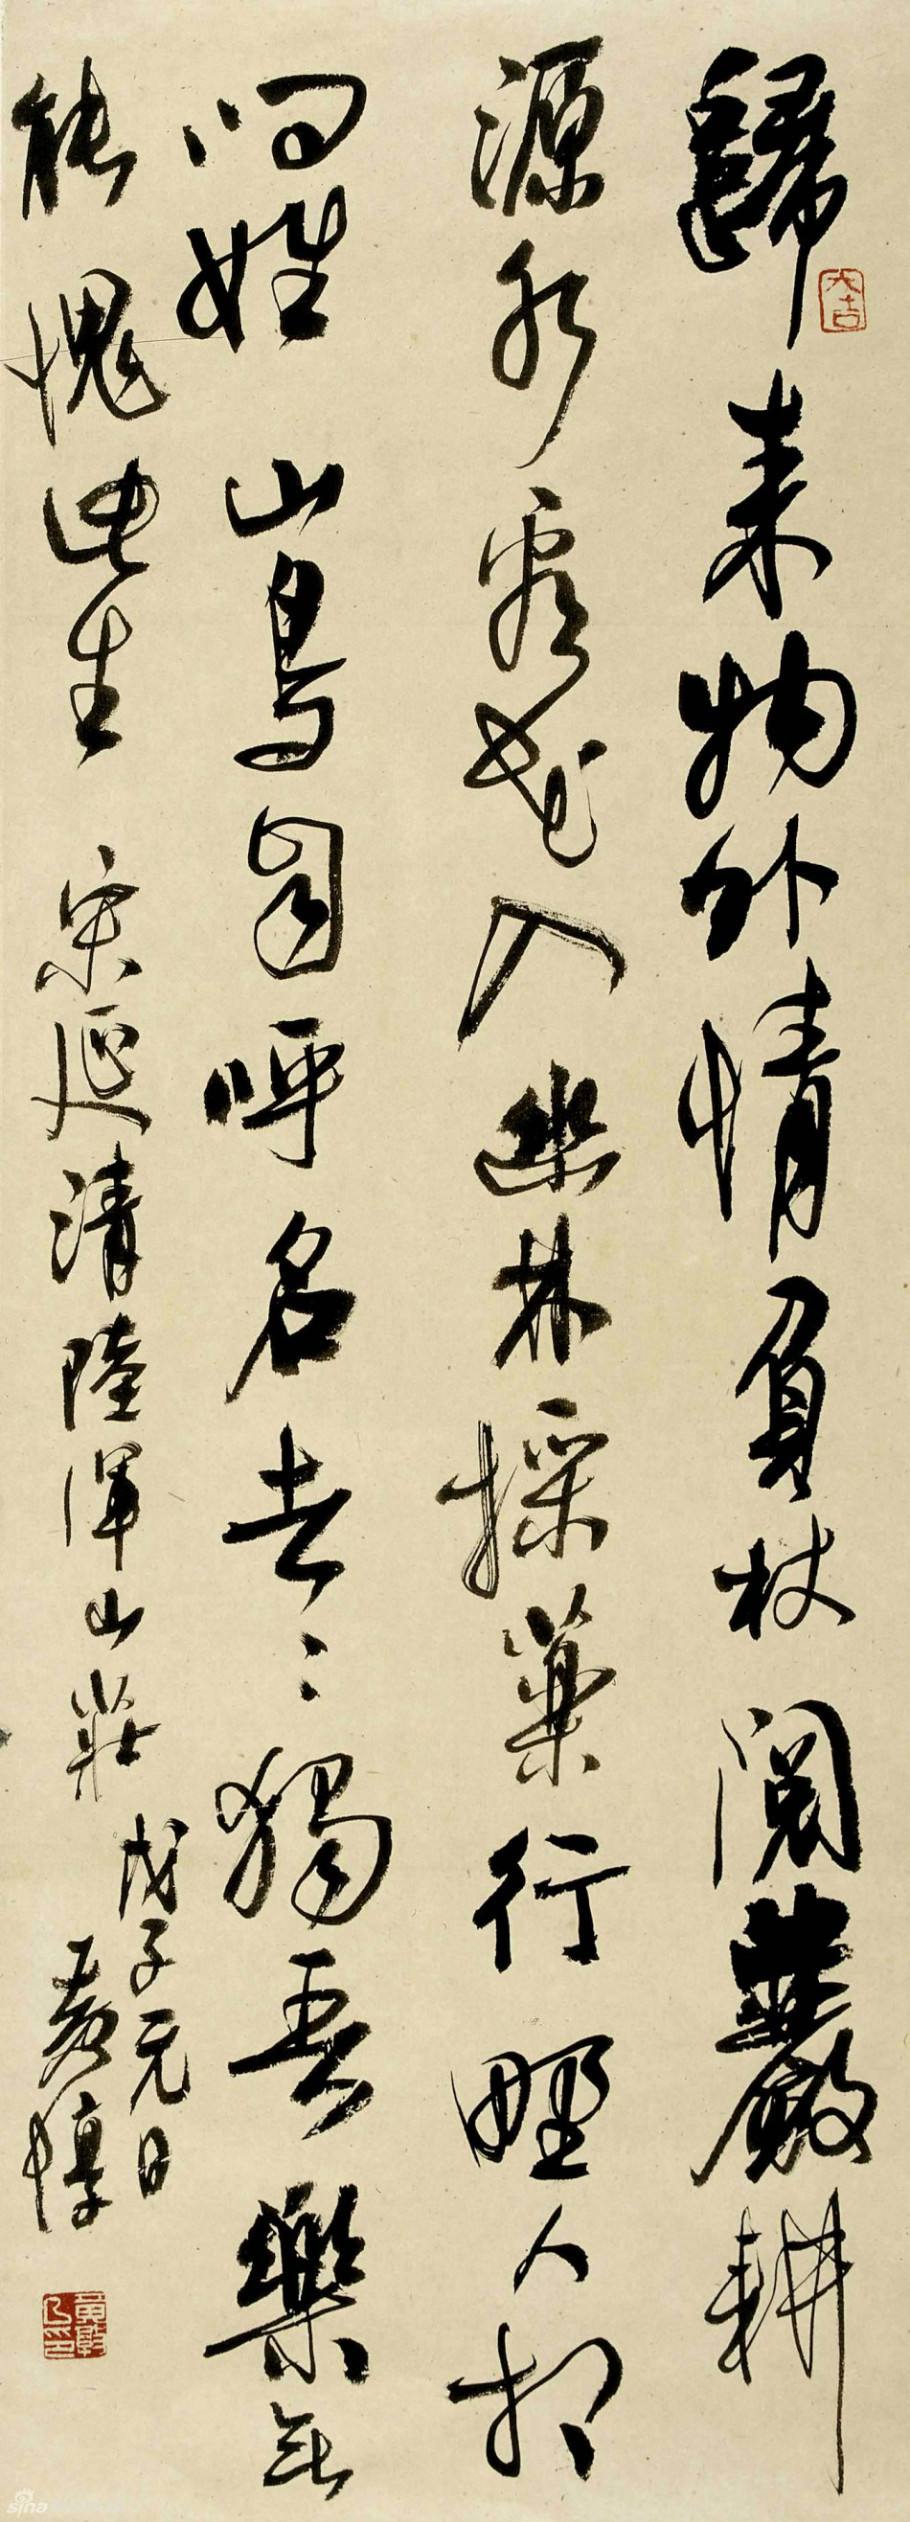 歸来物外情負杖閱巖耕
源水看花入幽林採藥行野人相
问姓山鳥自呼名去〻獨吾樂無
能愧此生 宋延清陸渾山莊
戊子元日
黄惇
大吉
黄惇之印
sina